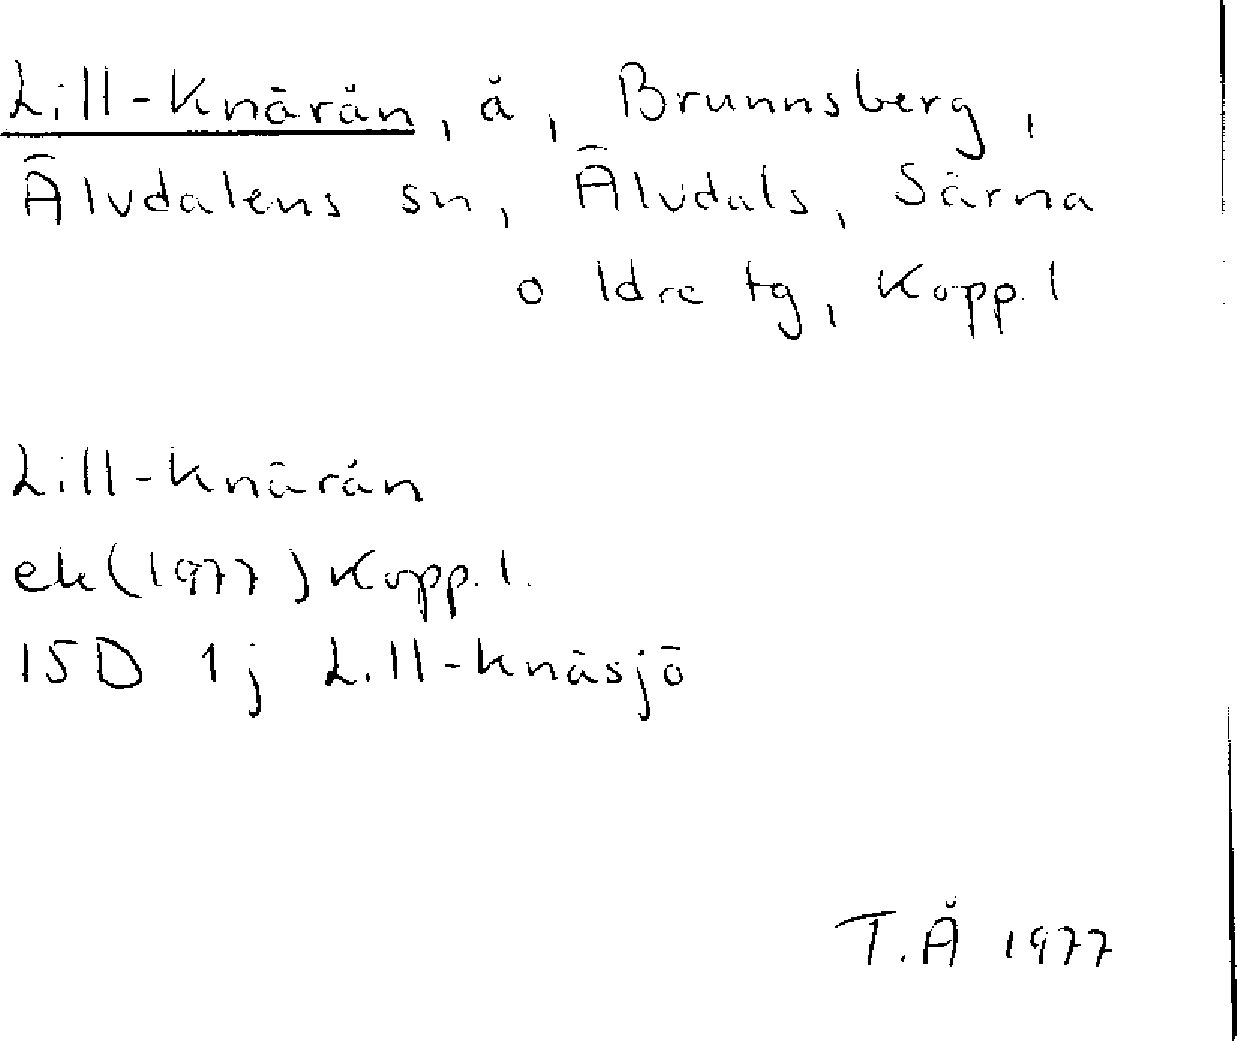 Lill-Knärån, å, Brunnsberg,
Älvdalens sn, Älvdals, Särna
o Idre tg, Kopp. l
Lill-Knärån
ek (1977) Kopp. l.
15D 1j Lill-Knäsjö
T.Å 1977